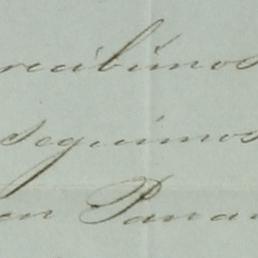 recibimos
seguimos
en Pana